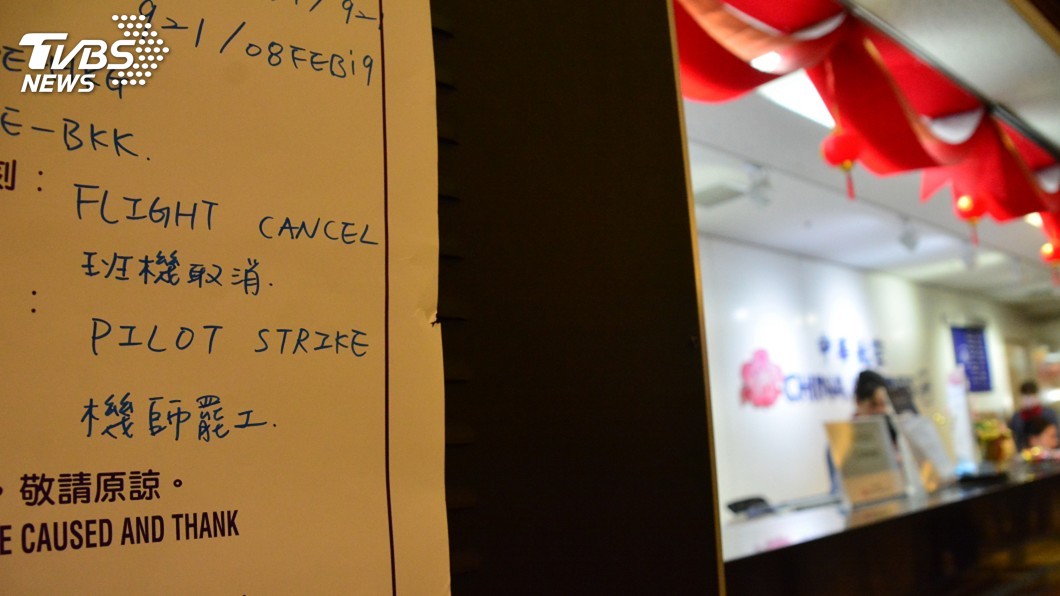 TVBS
NEWS
921/08FEB19
E-BKK.
刻：
FLIGHT CANCEL
班機取消.
：
PILOT STRIKE
機師罷工.
，敬請原諒。
E CAUSED AND THANK
中華
CHINA